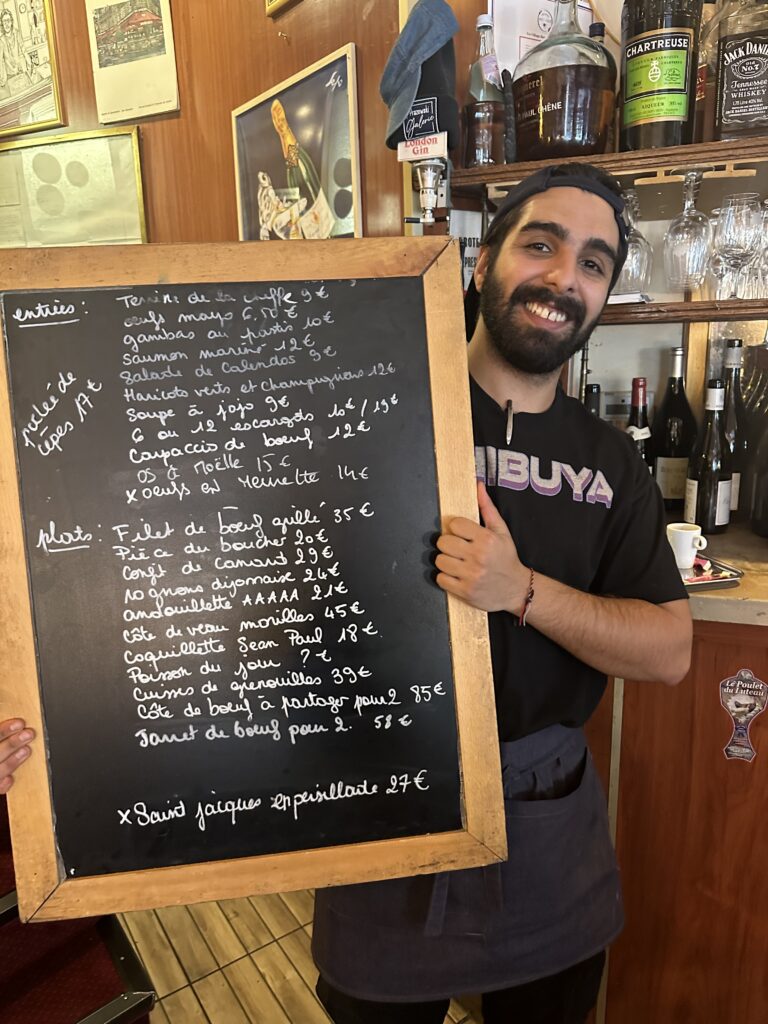 London
Gin
CHARTREUSE
JACK DANIEL'S
Old
No.7
Tennessee
WHISKEY
entrées :
Terrine de la truffe 9 €
oeufs mayo 6,50 €
gambas au pastis 10 €
Saumon mariné 12 €
Salade de Calendos 9 €
Haricots verts et champignons 12 €
Soupe à jojo 9 €
6 ou 12 escargots 10 € / 19 €
Carpaccio de boeuf 12 €
OS à Moëlle 15 €
x oeufs en Meurette 14 €
poêlée de
cèpes 17 €
plats :
Filet de boeuf grillé 35 €
Pièce du boucher 20 €
Confit de canard 29 €
rognons dijonnaise 24 €
andouillette AAAAA 21 €
Côte de veau morilles 45 €
Coquillette Jean Paul 18 €
Poisson du jour ? €
Cuisses de grenouilles 39 €
Côte de boeuf à partager pour 2 85 €
Jarret de boeuf pour 2. 58 €
x Saint jacques en persillade 27 €
HIBUYA
Le Poulet
du Luteau